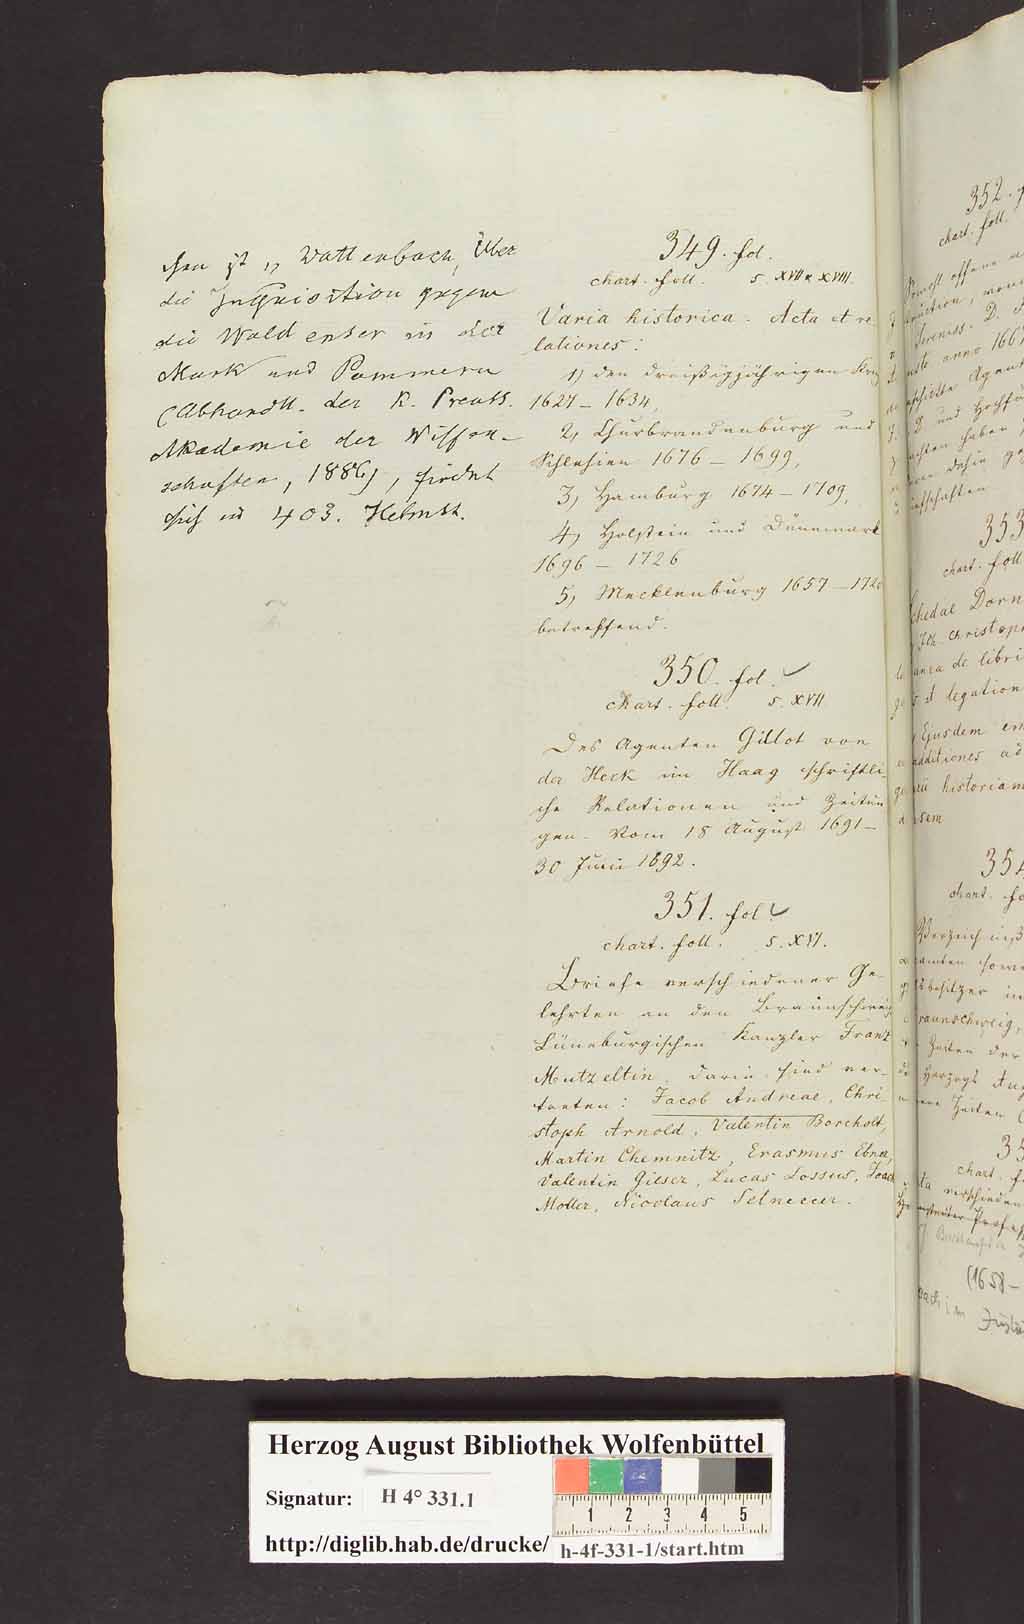 chen ist „ Wattenbach, Über
die Inquisition gegen
die Waldenser in der
Mark und Pommern
(Abhandll. der K. Preuss.
Akademie der Wissen-
schaften, 1886), findet
sich in 403. Helmst.
349. fol.
chart. foll. s. XVII u. XVIII.
Varia historica. Acta et re-
lationes:
1) den dreißigjährigen Krieg
1627 – 1634,
2, Churbrandenburg und
Schlesien 1676 – 1699,
3, Hamburg 1674 – 1709,
4, Holstein und Dänemark
1696 – 1726
5, Mecklenburg 1657 – 1720
betreffend.
350. fol.
chart. foll. s. XVII
Des Agenten Gillot von
der Heck im Haag schriftli-
che Relationen und Zeitun
gen. Vom 18 August 1691 –
30 Juni 1692.
351. fol.
chart. foll. s. XVI.
Briefe verschiedener Ge-
lehrten an den Braunschweig
Lüneburgischen Kanzler Franz
Mutzeltin, darin sind ver-
treten: Jacob Andreae, Chri-
stoph Arnold, Valentin Borcholt,
Martin Chemnitz, Erasmus Ebner,
Valentin Gieser, Lucas Lossius, Joach
Moller, Nicolaus Selneccer.
352.
chart. foll.
anno 166
und
haben
353
chart. foll
Schedae Dorn
Joh. Christoph
de libri
et legation
Ejusdem
additiones ad
historiam
354
chart. fo
Verzeichniß
besitzer in
raunschweig,
Zeiten der
Herzogs Aug
Zeiten
35
chart. f
verschieden
Profess
(1658 –
Herzog August Bibliothek Wolfenbüttel
Signatur: H 4° 331.1
1 2 3 4 5
http://diglib.hab.de/drucke/ h-4f-331-1/start.htm